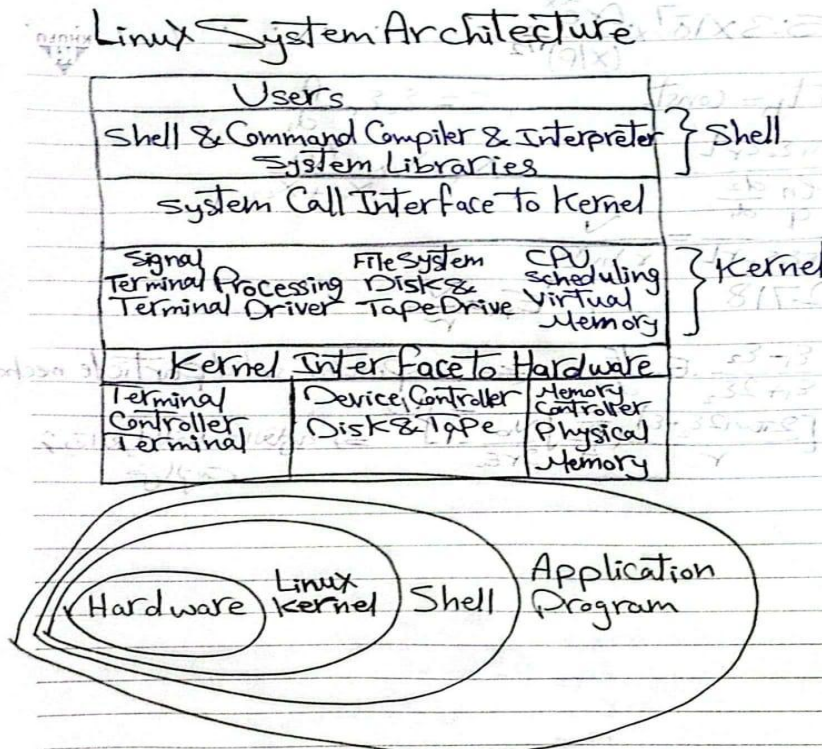 Linux System Architecture
Users
Shell & Command Compiler & Interpreter
System Libraries
Shell
System Call Interface to Kernel
Signal
Terminal Processing
Terminal Driver
File System
Disk &
Tape Drive
CPU
Scheduling
Virtual
Memory
Kernel
Kernel Interface to Hardware
Terminal
Controller
Terminal
Device Controller
Disk & Tape
Memory
Controller
Physical
Memory
Hardware
Linux
Kernel
Shell
Application
Program